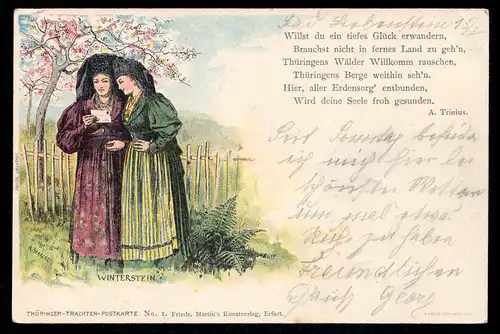 Bad Liebenstein 15/7
Willst du ein tiefes Glück erwandern,
Brauchst nicht in fernes Land zu geh'n,
Thüringens Wälder Willkomm rauschen,
Thüringens Berge weithin seh'n.
Hier, aller Erdensorg' entbunden,
Wird deine Seele froh gesunden.
A. Trinius.
Seit Sonntag befinde
ich mich hier bei
schönstem Wetter
um mal etwas
Ruhe zu haben
Freundlichen
Gruß Georg
WINTERSTEIN
THÜRINGER-TRACHTEN-POSTKARTE. No. 1. Friedr. Martin's Kunstverlag, Erfurt.